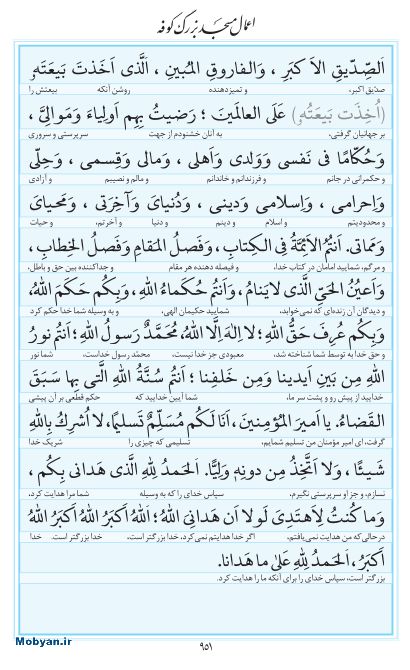 اعمال مسجد بزرگ کوفه
اَلصِّدّیقِ الاَکبَرِ ، وَالفاروقِ المُبینِ ، اَلَّذی اَخَذتَ بَیعَتَهُ
صدّیق اکبر، و تمیزدهنده روشن آنکه بیعتش را
(اُخِذَت بَیعَتُهُ) عَلَی العالَمینَ ؛ رَضیتُ بِهِم اَولِیاءَ وَمَوالِیَّ ،
بر جهانیان گرفتی، به آنان خشنودم از جهت سرپرستی و سروری
وَحُکّامًا فی نَفسی وَوَلَدی وَاَهلی ، وَمالی وَقِسمی ، وَحِلّی
و حکمرانی در جانم و فرزندانم و خاندانم و مالم و نصیبم و آزادی
وَاِحرامی ، وَاِسلامی وَدینی ، وَدُنیایَ وَآخِرَتی ، وَمَحیایَ
و محدودیتم و اسلام و دینم و دنیا و آخرتم، و حیات
وَمَماتی. اَنتُمُ الاَئِمَّةُ فِی الکِتابِ ، وَفَصلُ المَقامِ وَفَصلُ الخِطابِ ،
و مرگم، شمایید امامان در کتاب خدا، و فیصله دهنده هر مقام و جداکننده بین حق و باطل،
وَاَعیُنُ الحَیِّ الَّذی لایَنامُ ، وَاَنتُم حُکَماءُ اللهِ ، وَبِکُم حَکَمَ اللهُ ،
و دیدگان آن زنده‌ای که نمی‌خوابد، شمایید حکیمان الهی، و به وسیله شما خدا حکم کرد
وَبِکُم عُرِفَ حَقُّ اللهِ ؛ لااِلهَ اِلَّا اللهُ مُحَمَّدٌ رَسولُ اللهِ ؛ اَنتُم نورُ
و حق خدا به توسط شما شناخته شد، معبودی جز خدا نیست، محمّد رسول خداست، شما نور
اللهِ مِن بَینِ اَیدینا وَمِن خَلفِنا ؛ اَنتُم سُنَّةُ اللهِ الَّتی بِها سَبَقَ
خدایید از پیش رو و پشت سر ما، شما آیین خدایید که حکم قطعی بر آن پیشی
القَضاءُ. یا اَمیرَ المُؤمِنینَ ، اَنَا لَکُم مُسَلِّمٌ تَسلیمًا ، لا اُشرِکُ بِاللهِ
گرفت، ای امیر مؤمنان من تسلیم شمایم، تسلیمی که چیزی را شریک خدا
شَیئًا ، وَلا اَتَّخِذُ مِن دونِهِ وَلِیًّا. اَلحَمدُ لِلّهِ الَّذی هَدانی بِکُم ،
نسازم، و جز او سرپرستی نگیرم، سپاس خدای را که به وسیله شما مرا هدایت کرد،
وَما کُنتُ لِاَهتَدِیَ لَولا اَن هَدانِیَ اللهُ ؛ اَللهُ اَکبَرُ اَللهُ اَکبَرُ اَللهُ
درحالی‌که من هدایت نمی‌یافتم، اگر خدا هدایتم نمی‌کرد، خدا بزرگتر است، خدا بزرگتر است. خدا
اَکبَرُ ، اَلحَمدُ لِلّهِ عَلی ما هَدانا.
بزرگتر است، سپاس خدای را برای آنکه ما را هدایت کرد.
۹۵۱
Mobyan.ir